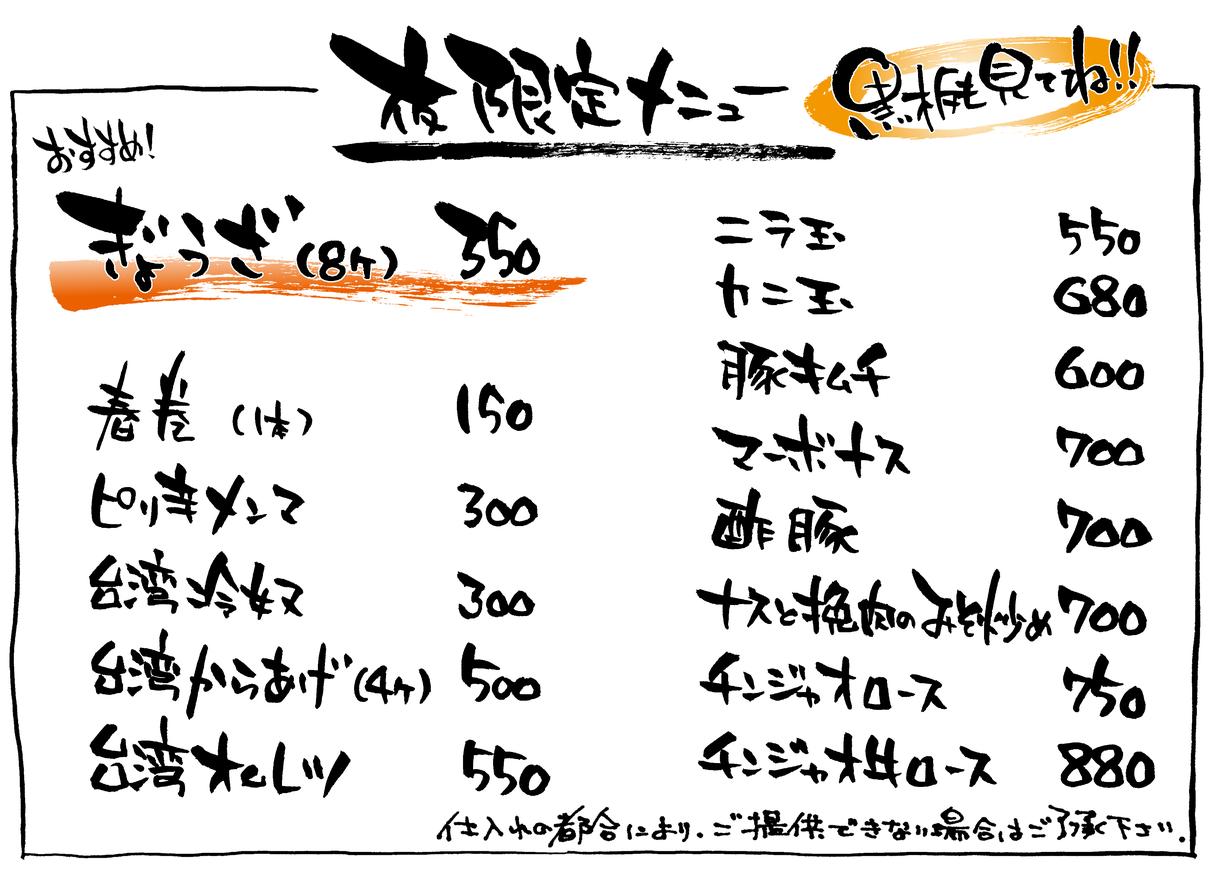 夜限定メニュー
黒板も見てね!!
おすすめ!
ぎょうざ(8ヶ) 350
春巻(1本) 150
ピリ辛メンマ 300
台湾冷奴 300
台湾からあげ(4ヶ) 500
台湾オムレツ 550
ニラ玉 550
カニ玉 680
豚キムチ 600
マーボナス 700
酢豚 700
ナスと挽肉のみそ炒め 700
チンジャオロース 750
チンジャオ牛ロース 880
仕入れの都合により、ご提供できない場合はご了承下さい。